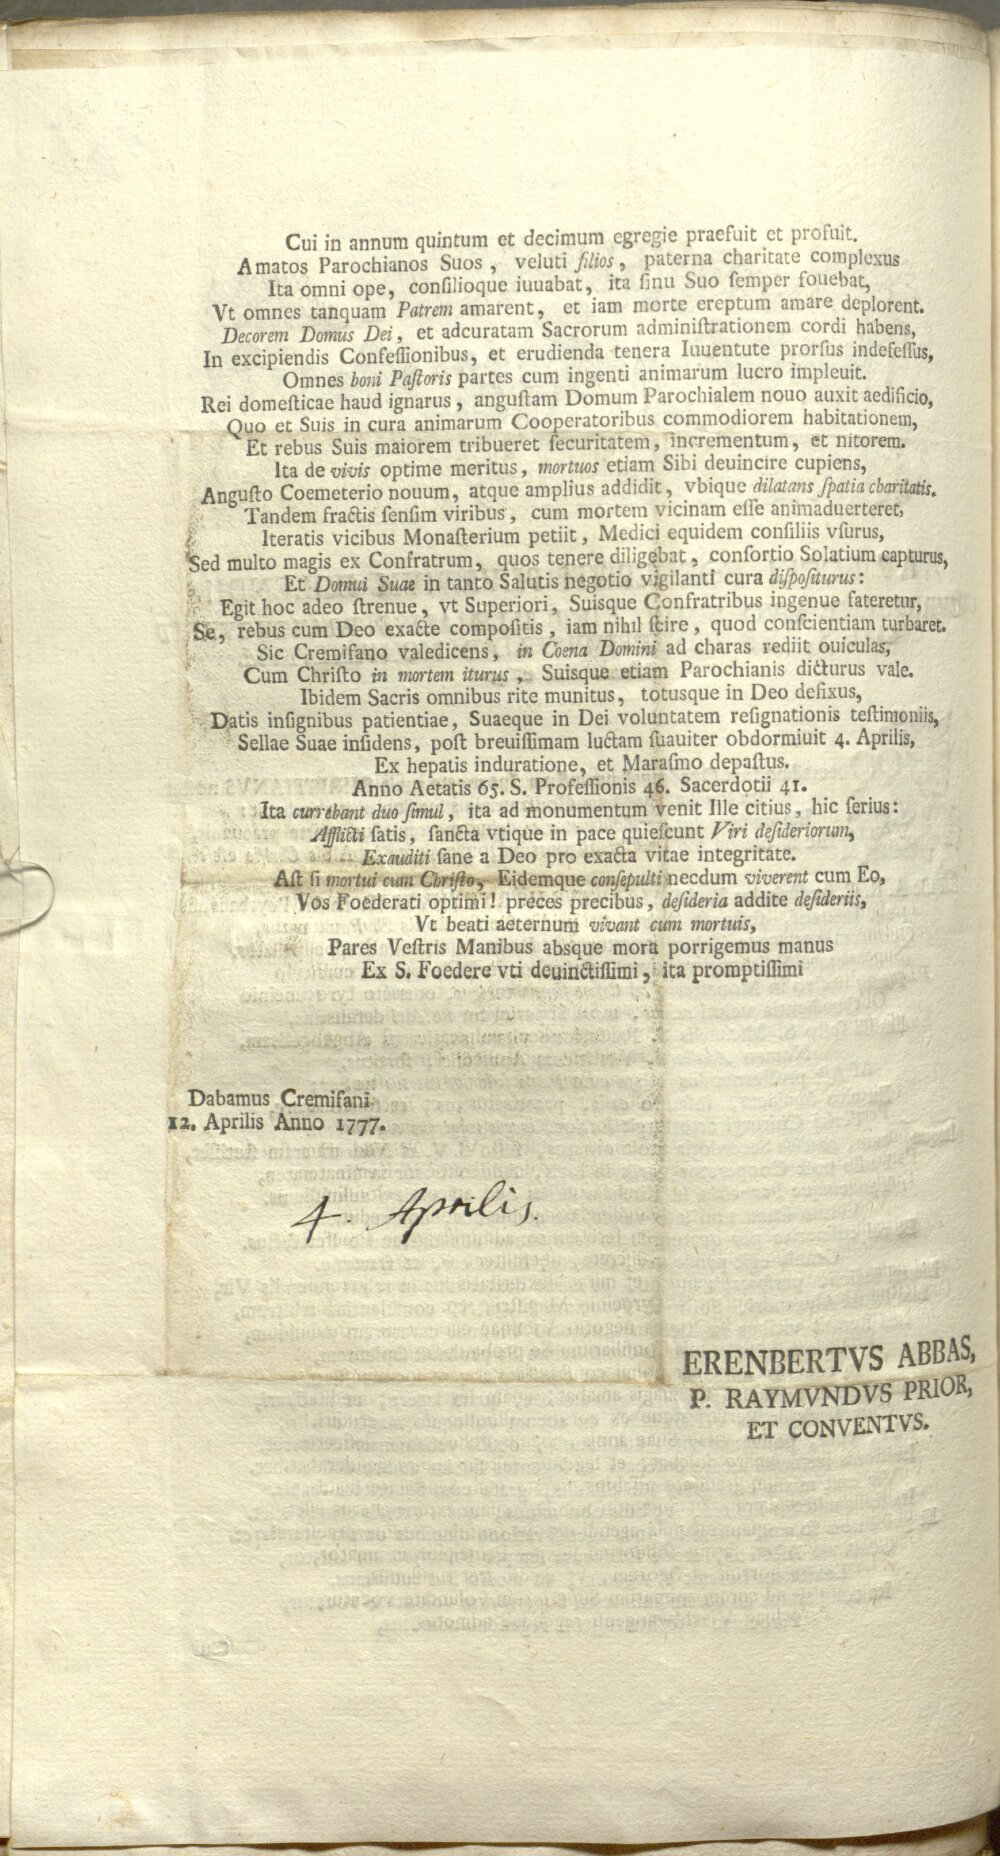 Cui in annum quintum et decimum egregie praefuit et profuit.
Amatos Parochianos Suos, veluti filios, paterna charitate complexus
Ita omni ope, conſilioque iuuabat, ita ſinu Suo ſemper fouebat,
Vt omnes tanquam Patrem amarent, et iam morte ereptum amare deplorent.
Decorem Domus Dei, et adcuratam Sacrorum adminiſtrationem cordi habens,
In excipiendis Confeſſionibus, et erudienda tenera Iuuentute prorſus indefeſſus,
Omnes boni Paſtoris partes cum ingenti animarum lucro impleuit.
Rei domeſticae haud ignarus, anguſtam Domum Parochialem nouo auxit aedificio,
Quo et Suis in cura animarum Cooperatoribus commodiorem habitationem,
Et rebus Suis maiorem tribueret ſecuritatem, incrementum, et nitorem.
Ita de vivis optime meritus, mortuos etiam Sibi deuincire cupiens,
Anguſto Coemeterio nouum, atque amplius addidit, vbique dilatans ſpatia charitatis.
Tandem fractis ſenſim viribus, cum mortem vicinam eſſe animaduerteret,
Iteratis vicibus Monaſterium petiit, Medici equidem conſiliis vſurus,
Sed multo magis ex Confratrum, quos tenere diligebat, conſortio Solatium capturus,
Et Domui Suae in tanto Salutis negotio vigilanti cura diſpoſiturus:
Egit hoc adeo ſtrenue, vt Superiori, Suisque Confratribus ingenue fateretur,
Se, rebus cum Deo exacte compoſitis, iam nihil ſcire, quod conſcientiam turbaret.
Sic Cremifano valedicens, in Coena Domini ad charas rediit ouiculas,
Cum Chriſto in mortem iturus, Suisque etiam Parochianis dicturus vale.
Ibidem Sacris omnibus rite munitus, totusque in Deo defixus,
Datis inſignibus patientiae, Suaeque in Dei voluntatem reſignationis teſtimoniis,
Sellae Suae inſidens, poſt breuiſſimam luctam ſuauiter obdormiuit 4. Aprilis,
Ex hepatis induratione, et Maraſmo depaſtus.
Anno Aetatis 65. S. Profeſſionis 46. Sacerdotii 41.
Ita currebant duo ſimul, ita ad monumentum venit Ille citius, hic ſerius:
Afflicti ſatis, ſancta vtique in pace quieſcunt Viri deſideriorum,
Exauditi ſane a Deo pro exacta vitae integritate.
Aſt ſi mortui cum Chriſto, Eidemque conſepulti necdum viverent cum Eo,
Vos Foederati optimi! preces precibus, deſideria addite deſideriis,
Vt beati aeternum vivant cum mortuis,
Pares Veſtris Manibus absque mora porrigemus manus
Ex S. Foedere vti deuinctiſſimi, ita promptiſſimi
Dabamus Cremifani
12. Aprilis Anno 1777.
4 Aprilis.
ERENBERTVS ABBAS,
P. RAYMVNDVS PRIOR,
ET CONVENTVS.